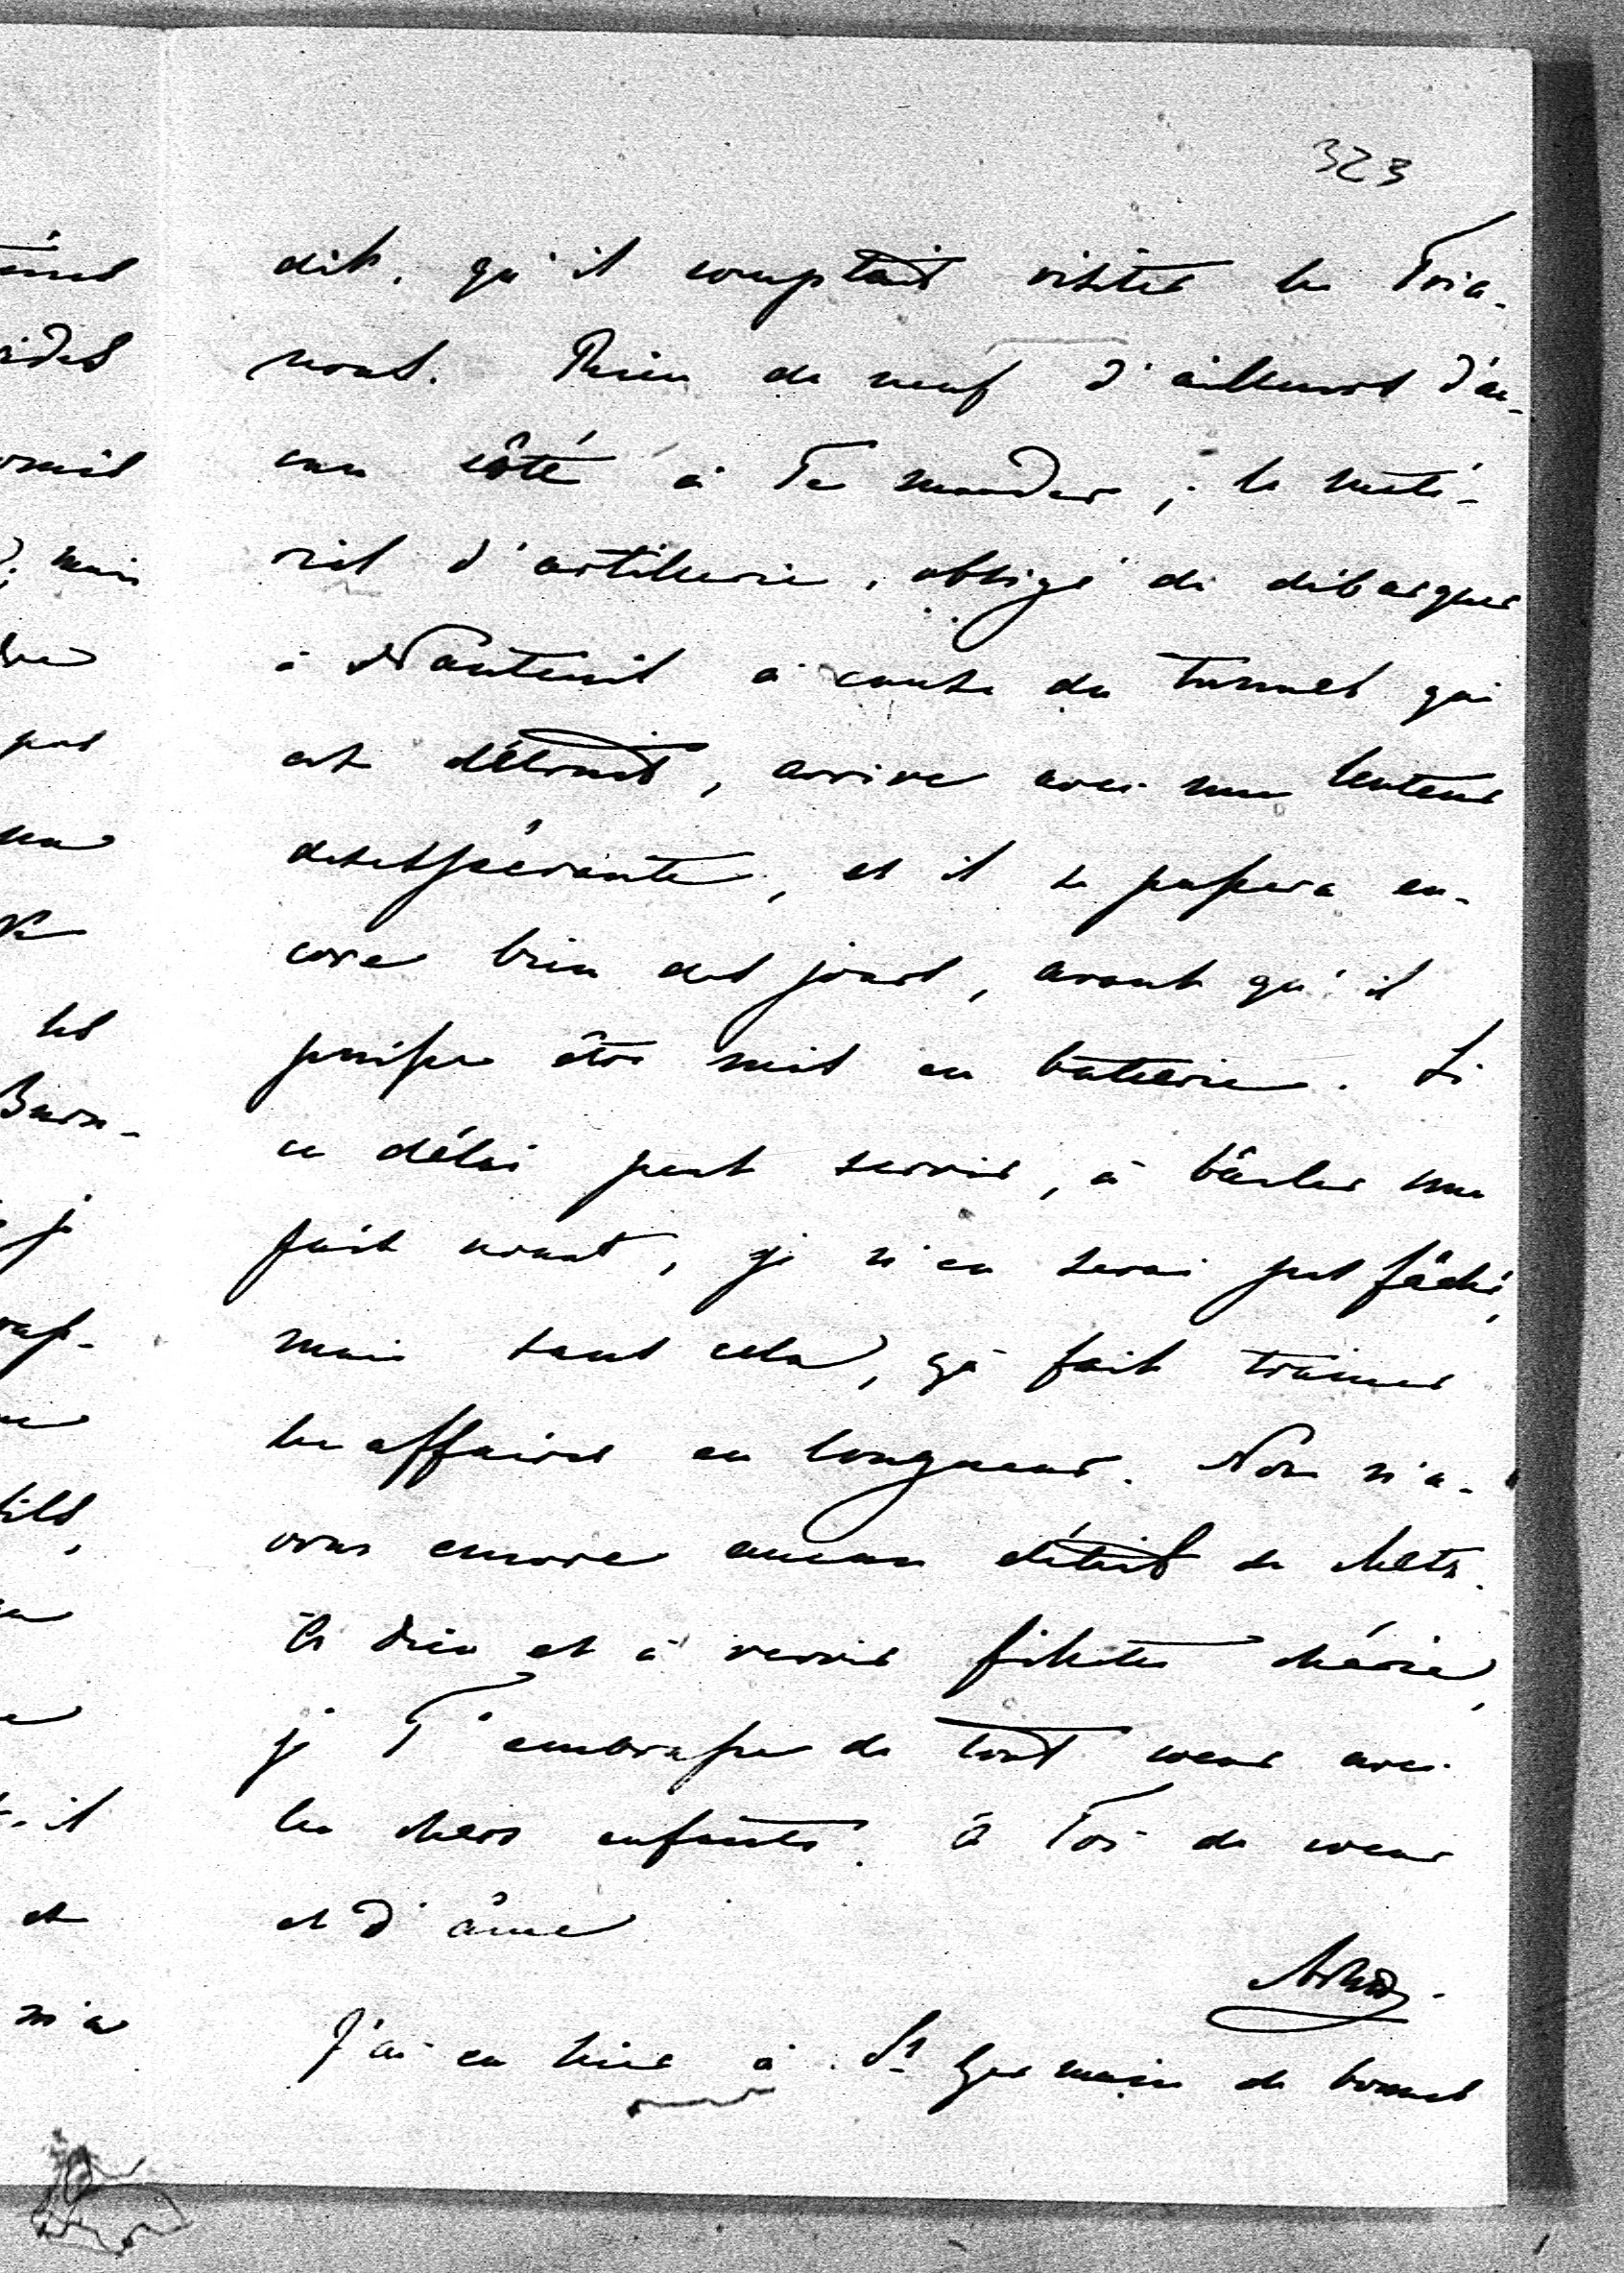 323
dit, qu'il comptait visiter les Tria-
nons. Rien de neuf d'ailleurs d'au-
cun côté à Te mander; le maté-
riel d'artillerie, obligé de débarquer
à Nanteuil à cause du tunnel qui
est détruit, arrive avec une lenteur
desespérante, et il se passera en-
core bien des jours, avant qu'il
puisse être mis en batterie. Si
ce délai peut servir, à bâcler une
paix avant, je n'en serai pas fâché,
mais sans cela, ça fait trainer
les affaires en longueur. Nous n'a-
vons encore aucun détail de Metz.
à Dieu et à revoir fifille chérie,
je T'embrasse de tout coeur avec
les chers enfants. à Toi de coeur
et d'âme
J'ai eu hier à St Germain de bonnes